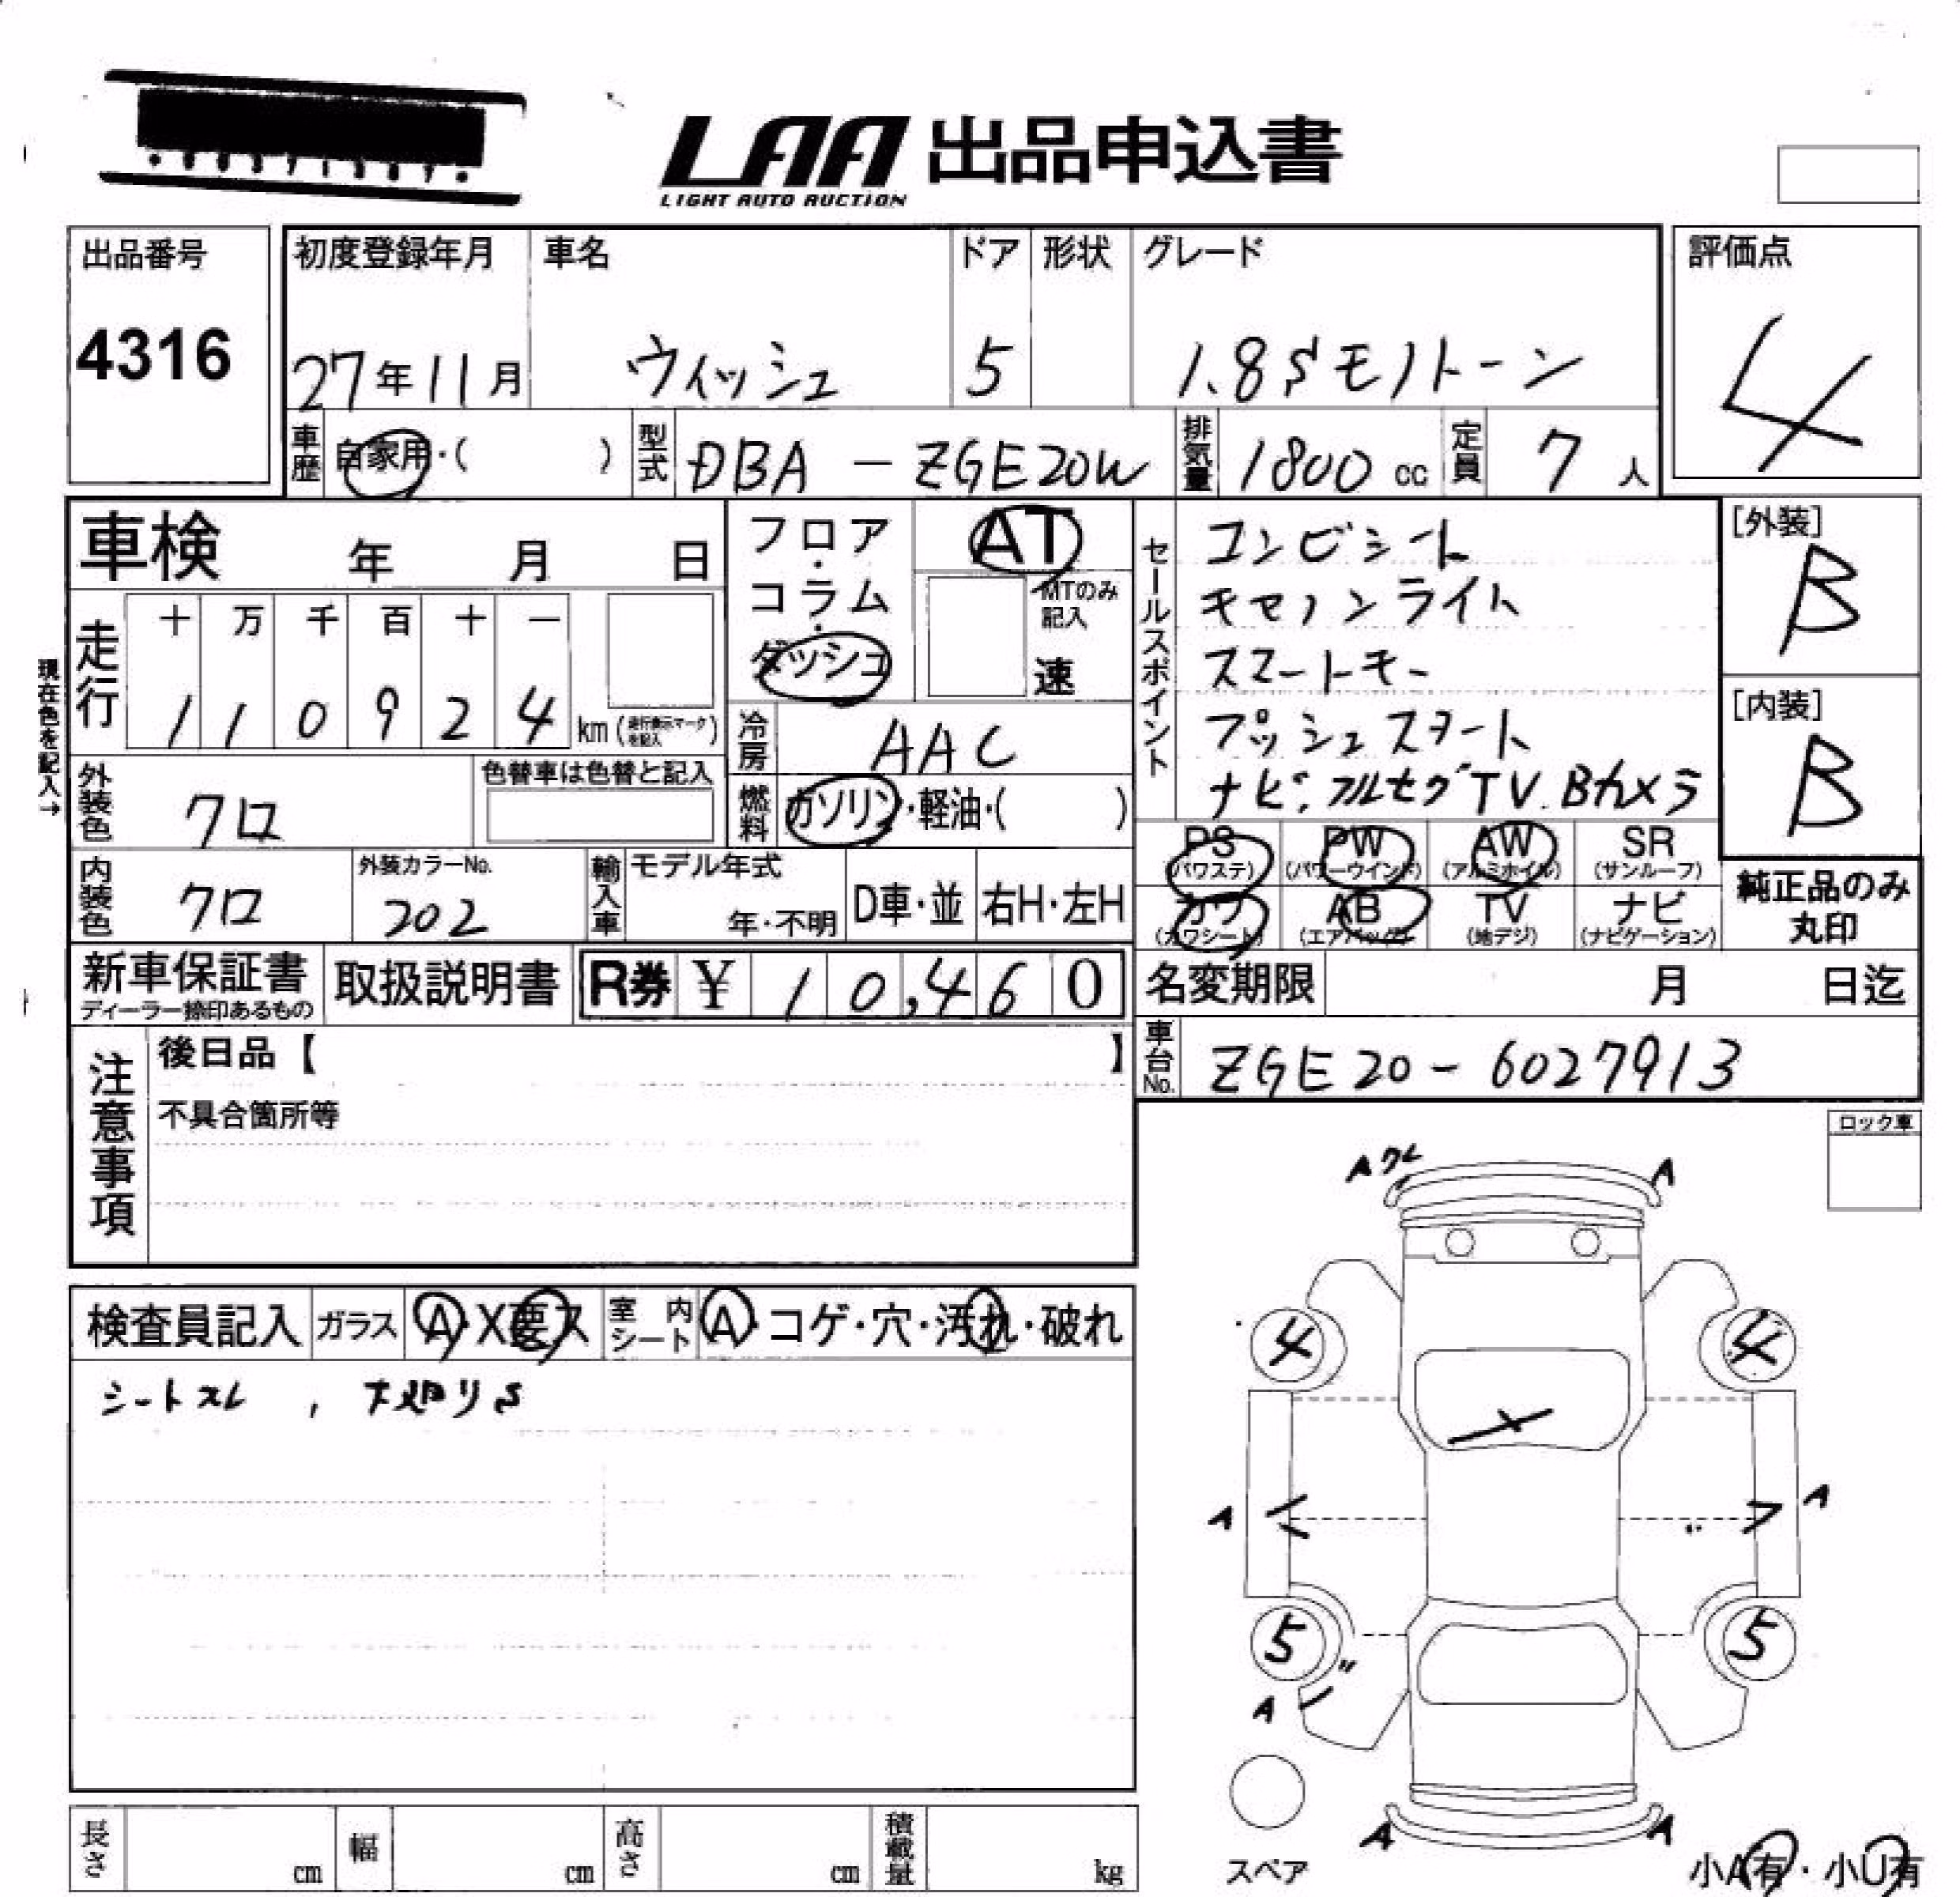 LAA 出品申込書
LIGHT AUTO AUCTION
出品番号
4316
初度登録年月 車名 ドア 形状 グレード
27年11月 ウィッシュ 5 1.8Sモノトーン
評価点
4
車歴 自家用・( ) 型式 DBA-ZGE20W 排気量 1800cc 定員 7人
車検 年 月 日
フロア・コラム・ダッシュ
AT
MTのみ記入
速
現在色を記入→
走行 十 万 千 百 十 一
1 1 0 9 2 4 km(走行表示マークを記入)
冷房 AAC
外装色 クロ
色替車は色替と記入
燃料 ガソリン・軽油・( )
内装色 クロ
外装カラーNo.
202
輸入車 モデル年式
年・不明
D車・並 右H・左H
セールスポイント
コンビシート
キセノンライト
スマートキー
プッシュスタート
ナビ.フルセグTV.Bカメラ
[外装]
B
[内装]
B
PS PW AW SR
(パワステ) (パワーウインド) (アルミホイル) (サンルーフ)
カワ AB TV ナビ
(カワシート) (エアバッグ) (地デジ) (ナビゲーション)
純正品のみ
丸印
新車保証書
ディーラー捺印あるもの
取扱説明書
R券 ¥ 10,460
名変期限 月 日迄
車台No. ZGE20-6027913
注意事項
後日品【 】
不具合箇所等
ロック車
検査員記入 ガラス A・X要ス 室内シート A・コゲ・穴・汚れ・破れ
シートスレ , 下廻りS
A クレ A
4 4
A A
5 5
〃
A
A A
スペア
小A有・小U有
長さ cm 幅 cm 高さ cm 積載量 kg